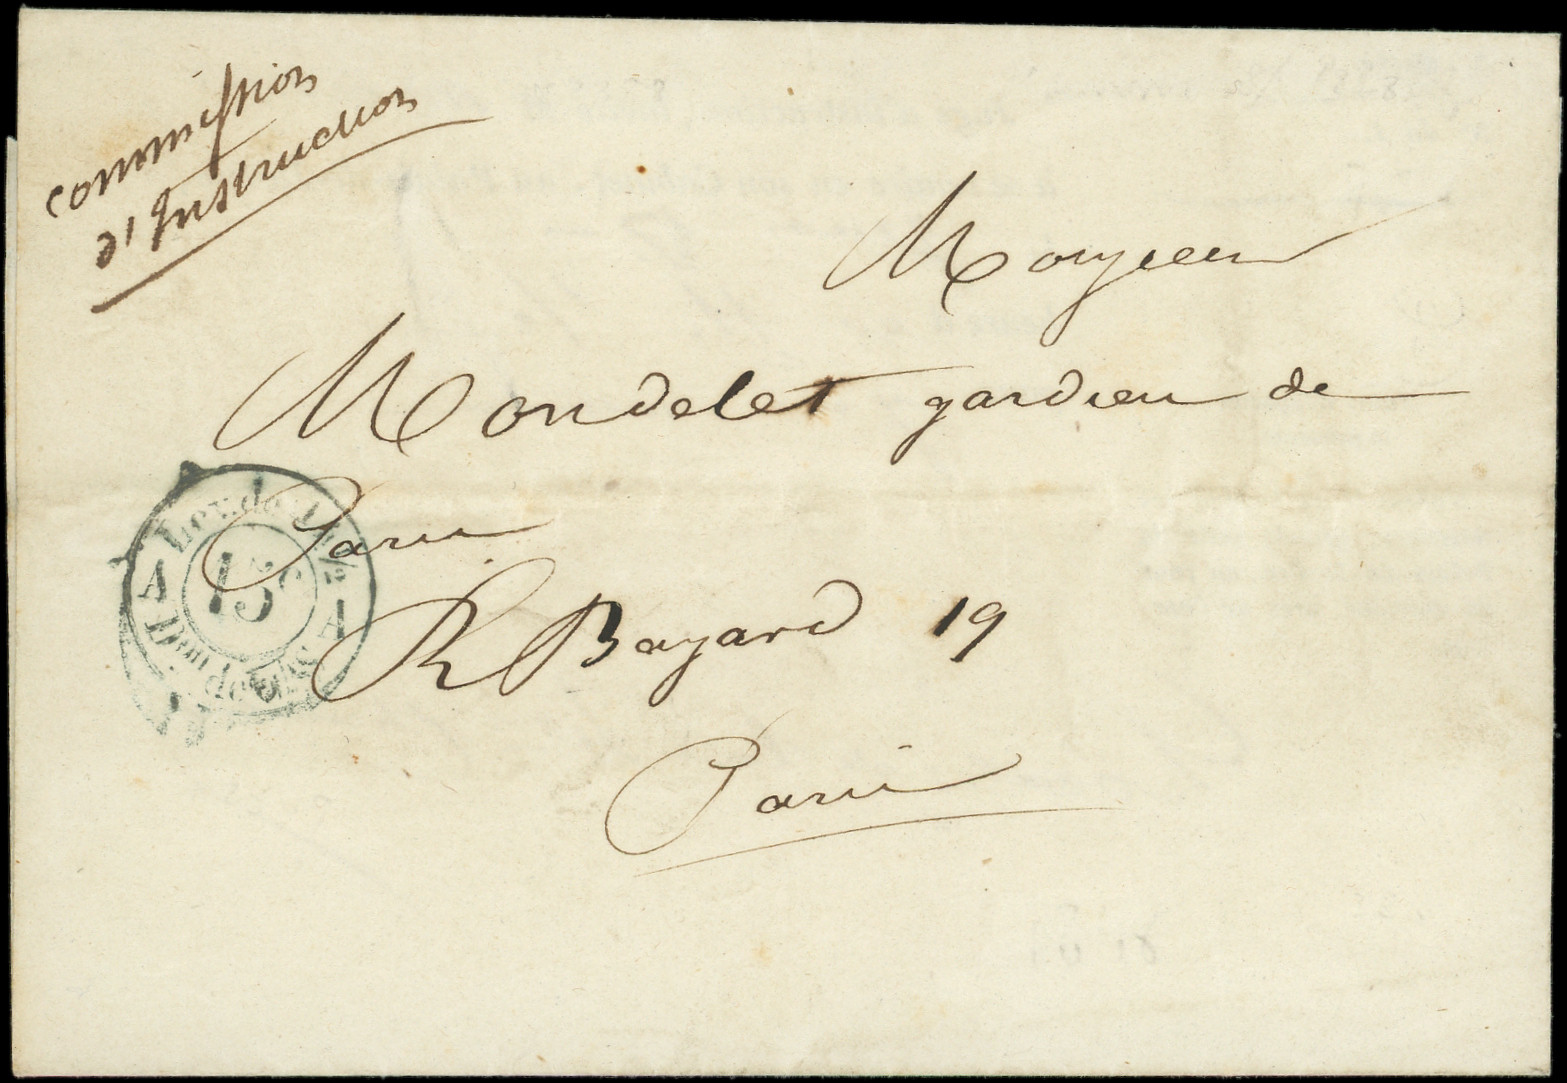 commission
d'Instruction
Monsieur
Mondelet gardien de
Paris
R Bayard 19
Paris
Lev. de
15c
A A